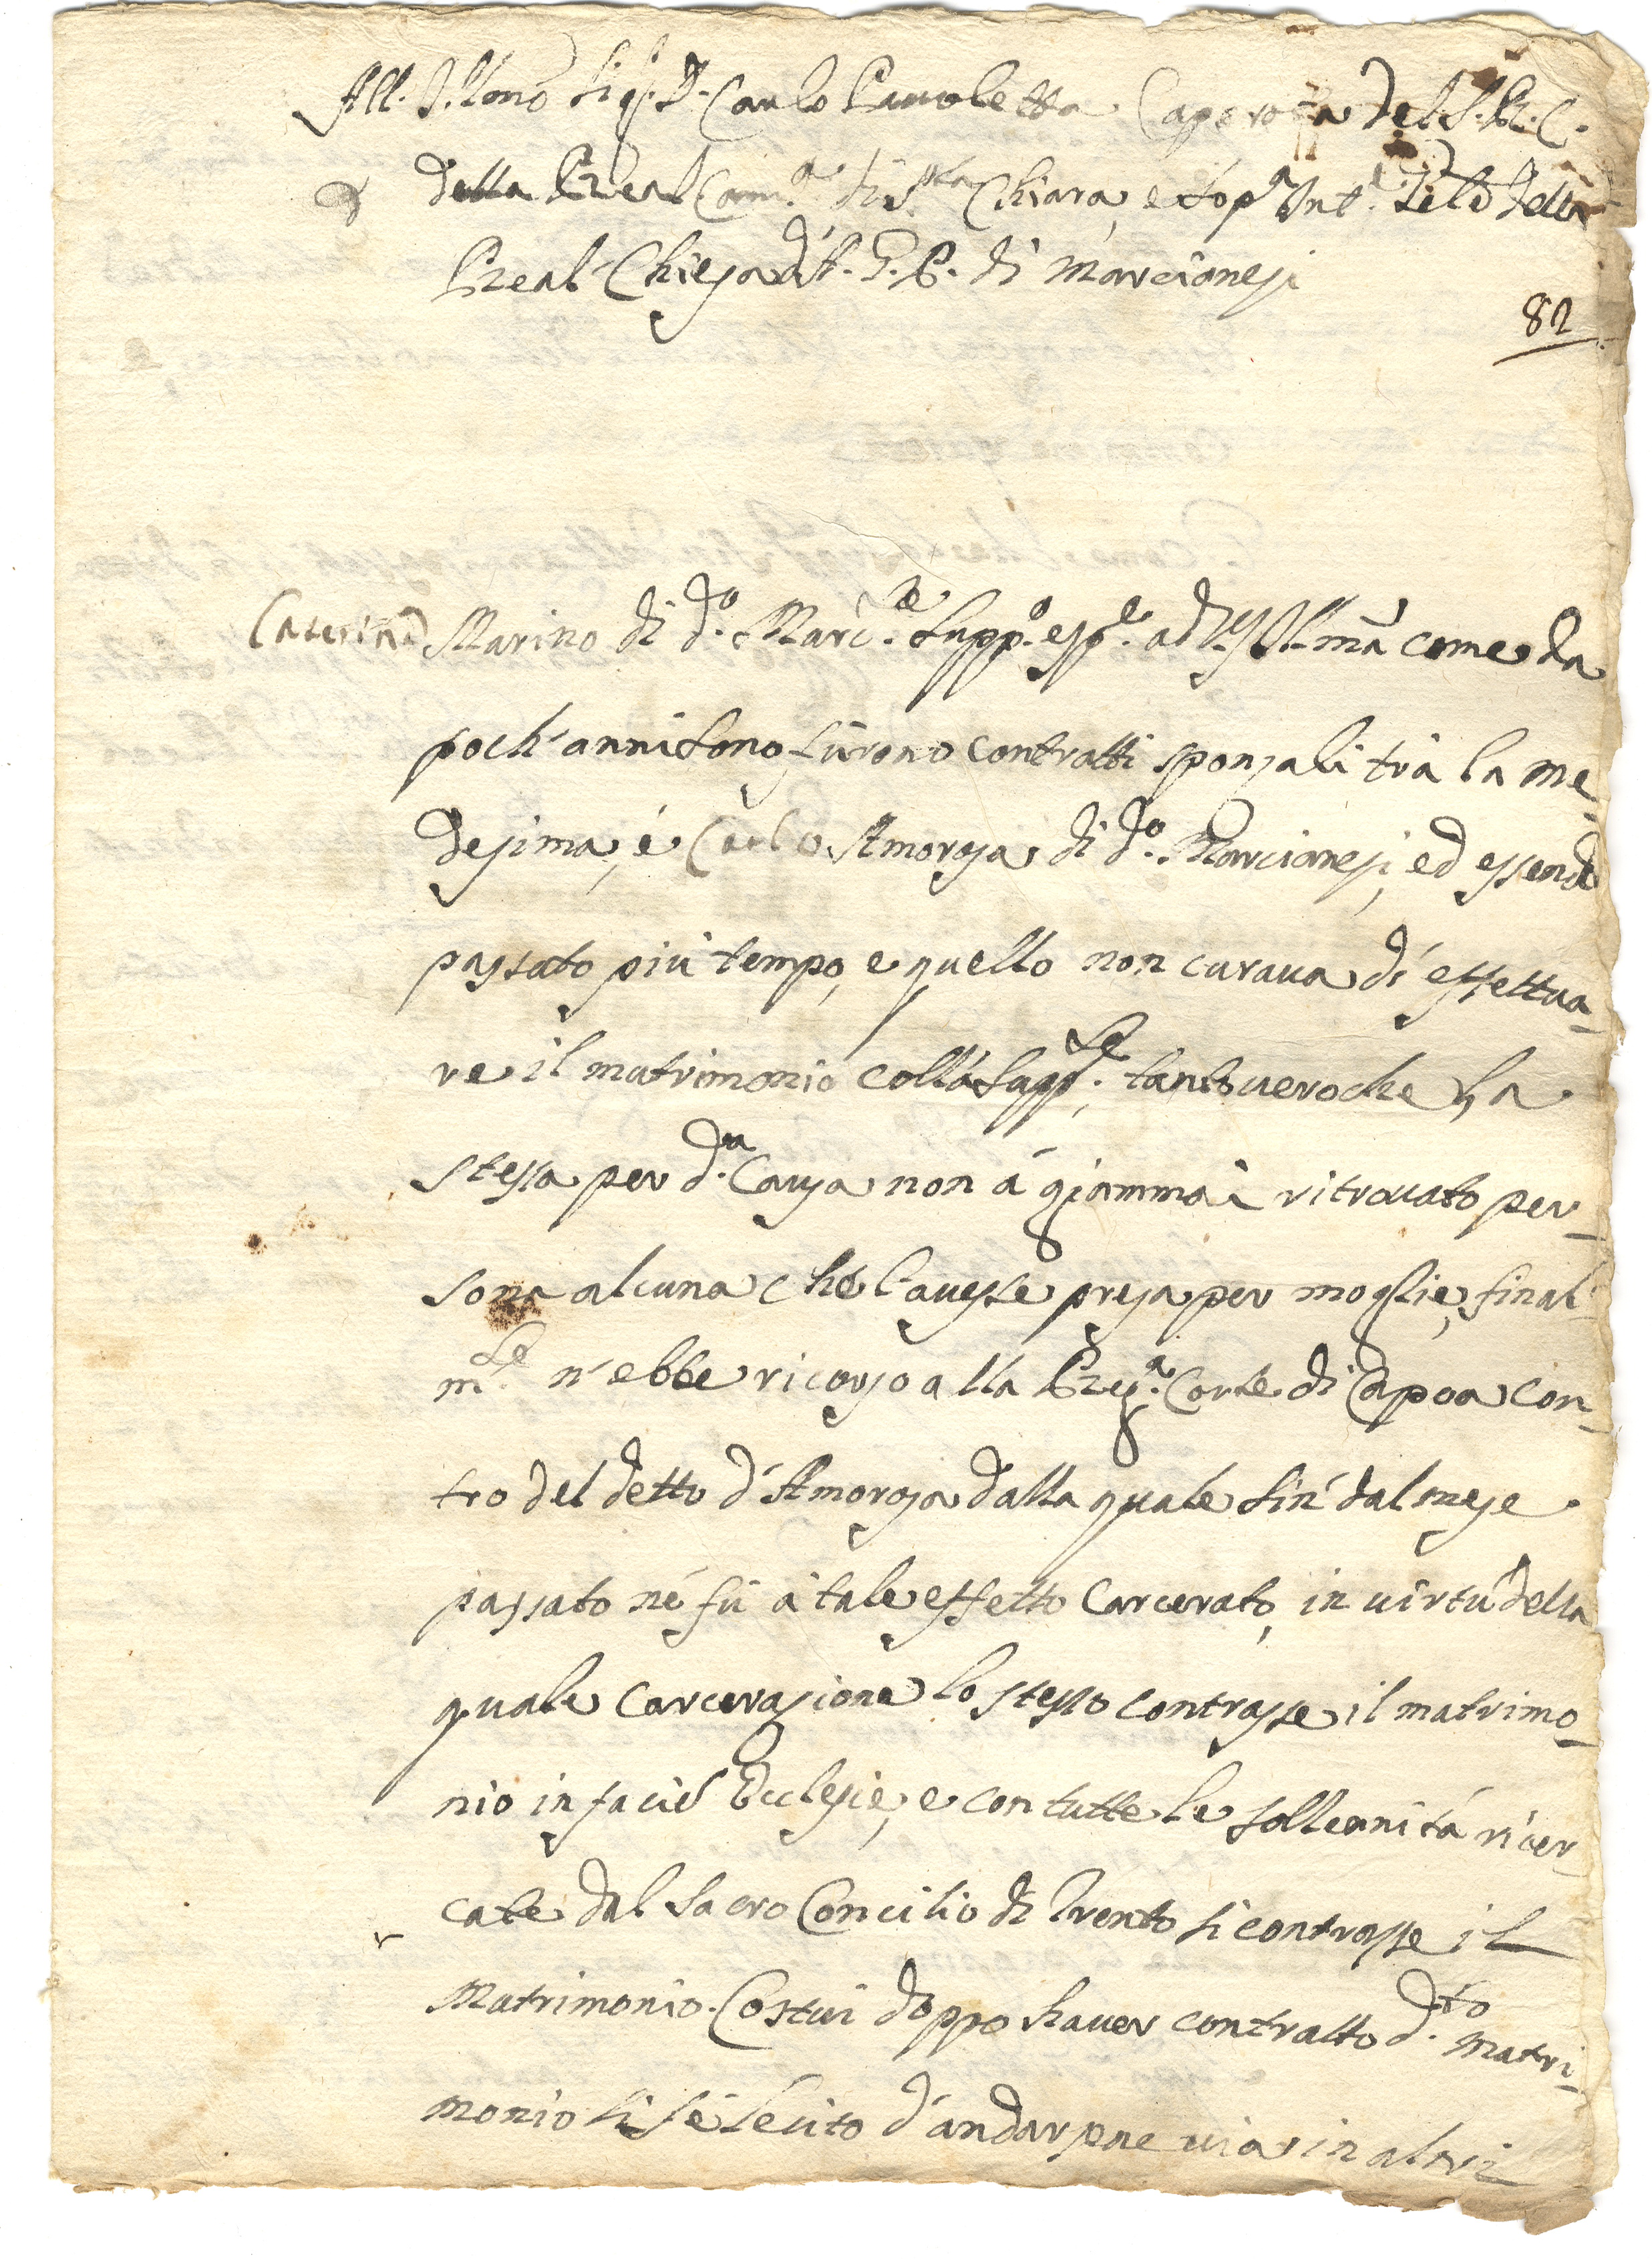 All. Ill.mo Sig.r D. Carlo Pauoletta Caporota del S. R. C.
della Real Cam.a di S.ta Chiara, e sop.a Int.e
Real Chiesa di S. G. B. di Marcianesi
82
Caterina Marino di d.o Marc.e supp.e esp.e ad V. S. Ill.ma come da
poch'anni sono furono contratti sponsali trà la me
desima, é Carlo Amorosa di d.o Marcianesi, ed essendo
passato più tempo, e quello non curaua di effettua-
re il matrimonio colla supp.te, tanto uero che la
stessa per d.a Causa non á giammai ritrouato per-
sona alcuna ché l'auesse presa per moglie, final-
m.te n'ebbe ricorso alla Reg.a Corte di Capoa con-
tro del detto d'Amorosa dalla quale sin' dal mese
passato né fù à tale effetto Carcerato, in uirtù della
quale Carcerazione lo stesso contrasse il matrimo-
nio in facie Ecclesie, e con tutte le sollennitá ricer-
cate dal Sacro Concilio di Trento si contrasse il
Matrimonio. Costui doppo hauer contratto d.to matri-
monio si fé lecito d'andarsene uia in altri